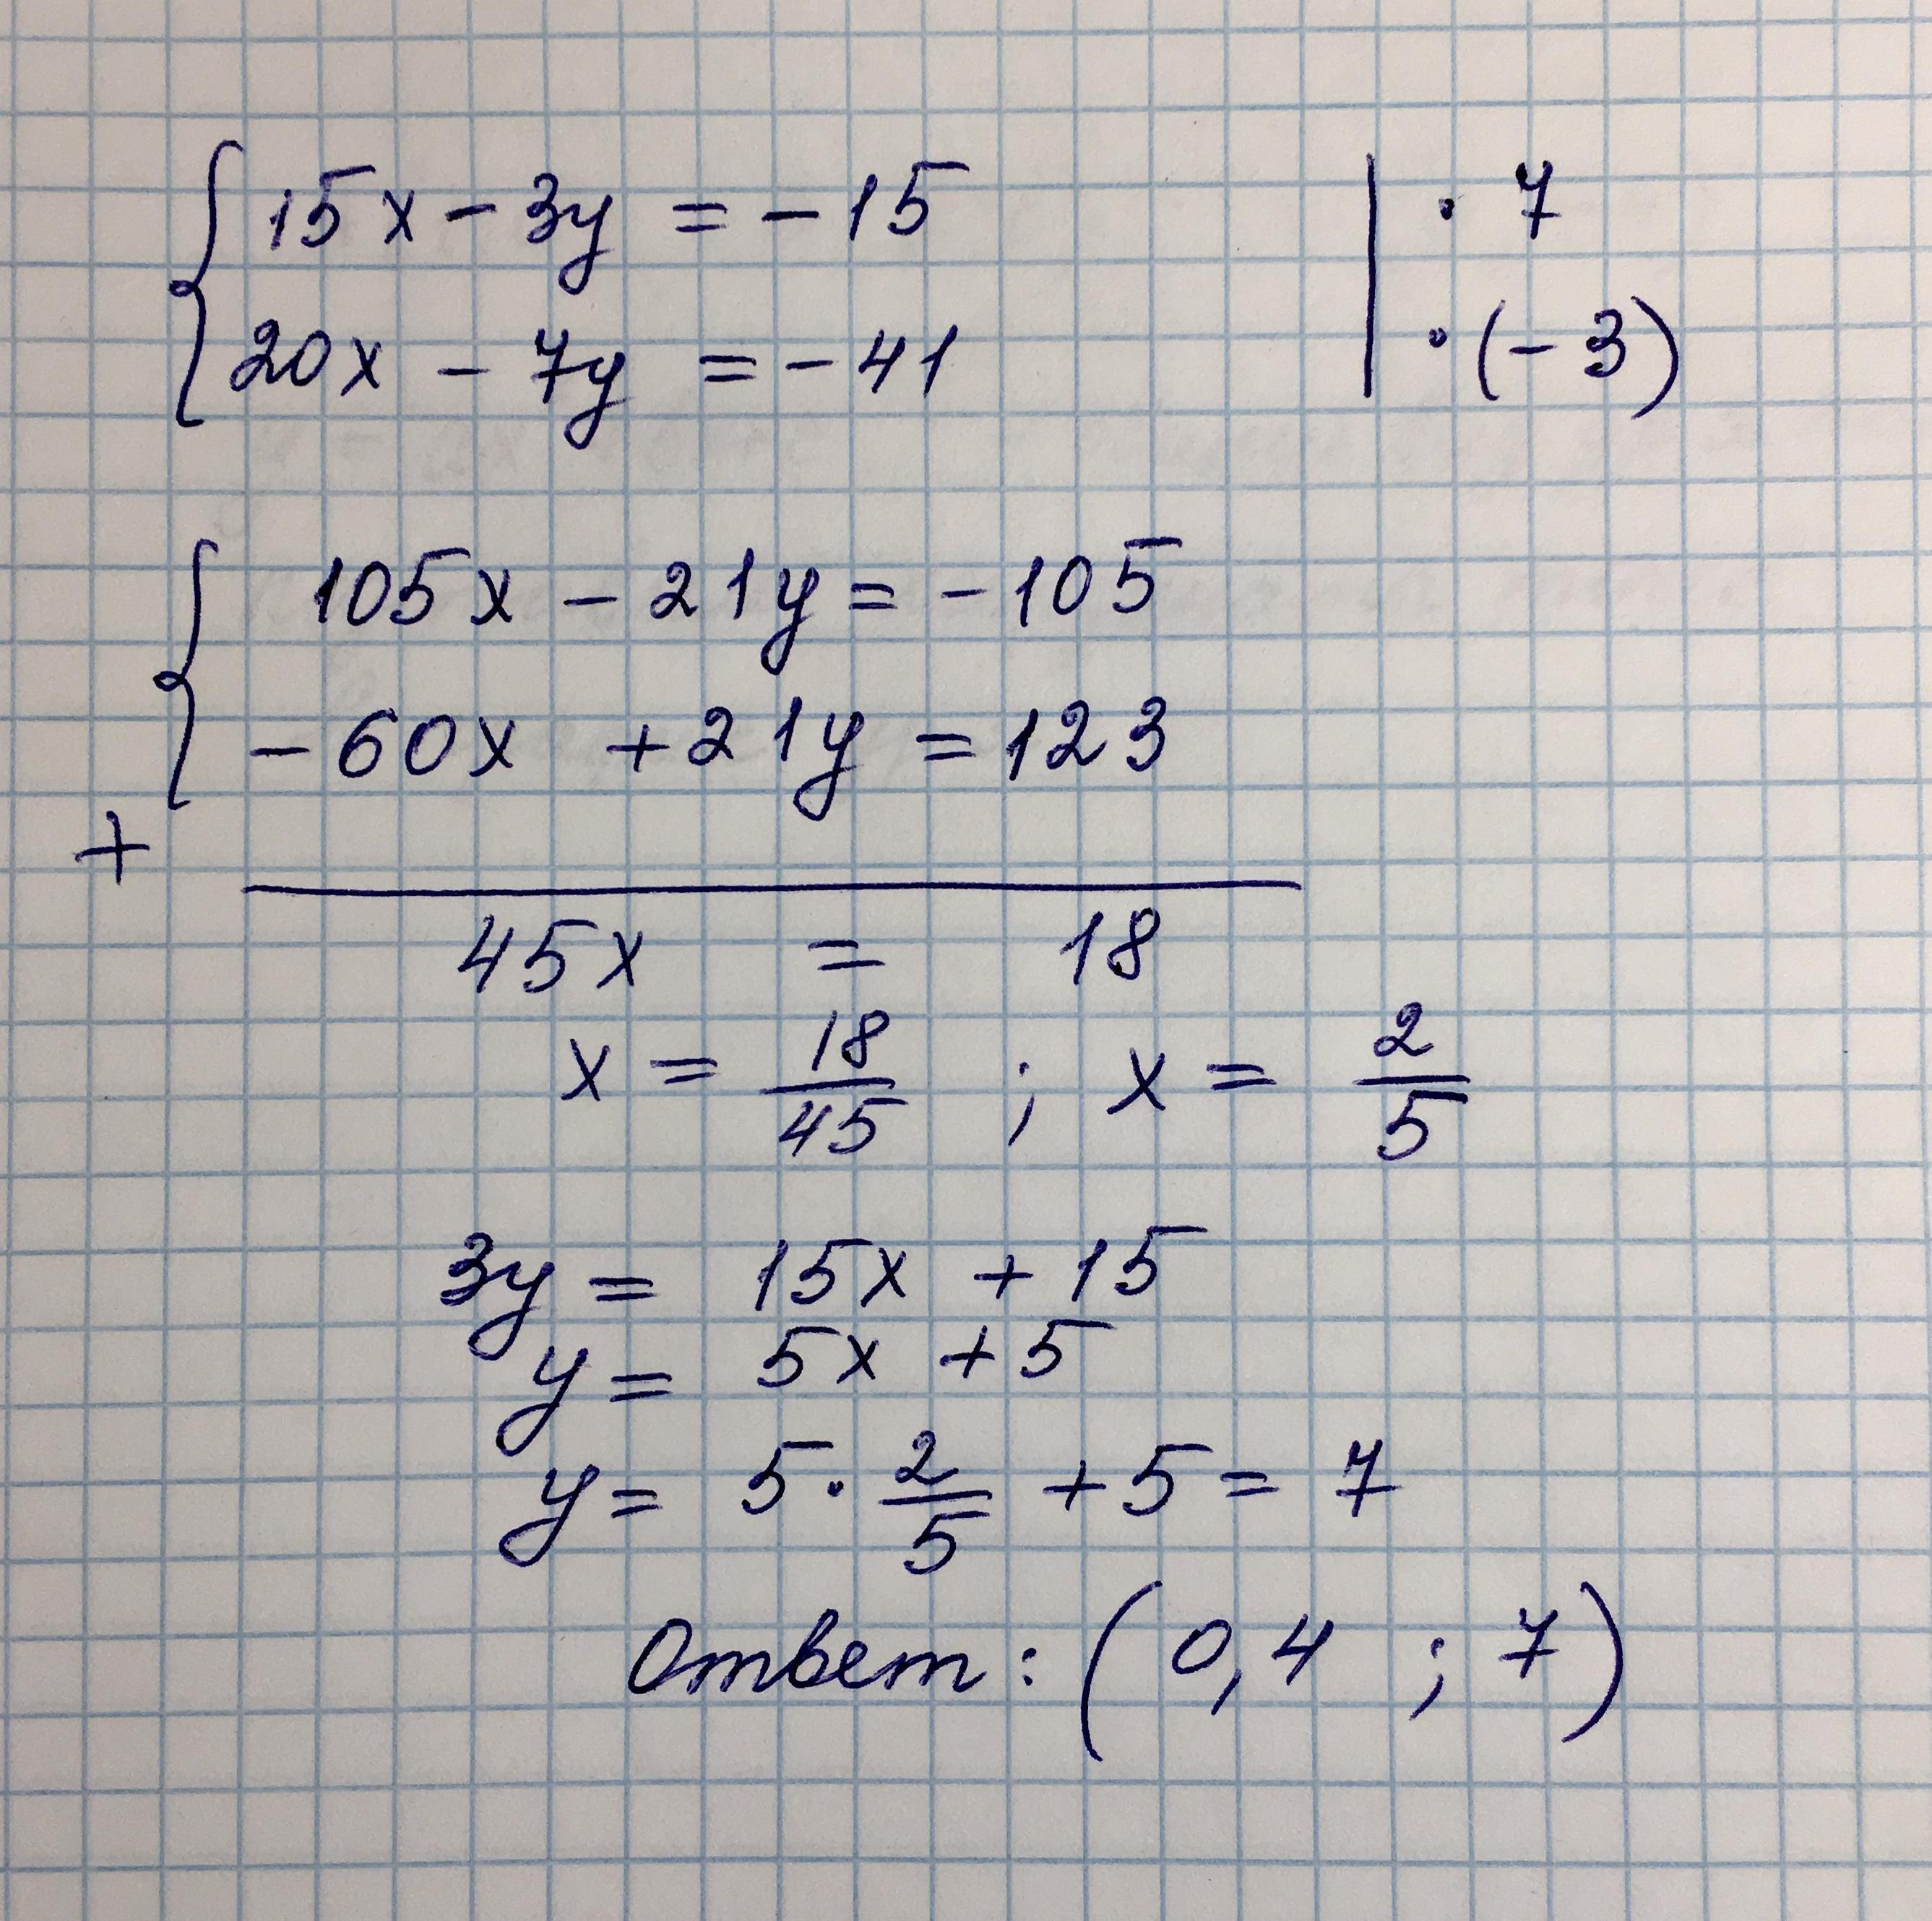 { 15x - 3y = -15 | · 7
20x - 7y = -41 | · (-3)
{ 105x - 21y = -105
-60x + 21y = 123
+
45x = 18
x = 18/45 ; x = 2/5
3y = 15x + 15
y = 5x + 5
y = 5 · 2/5 + 5 = 7
Ответ: (0,4 ; 7)